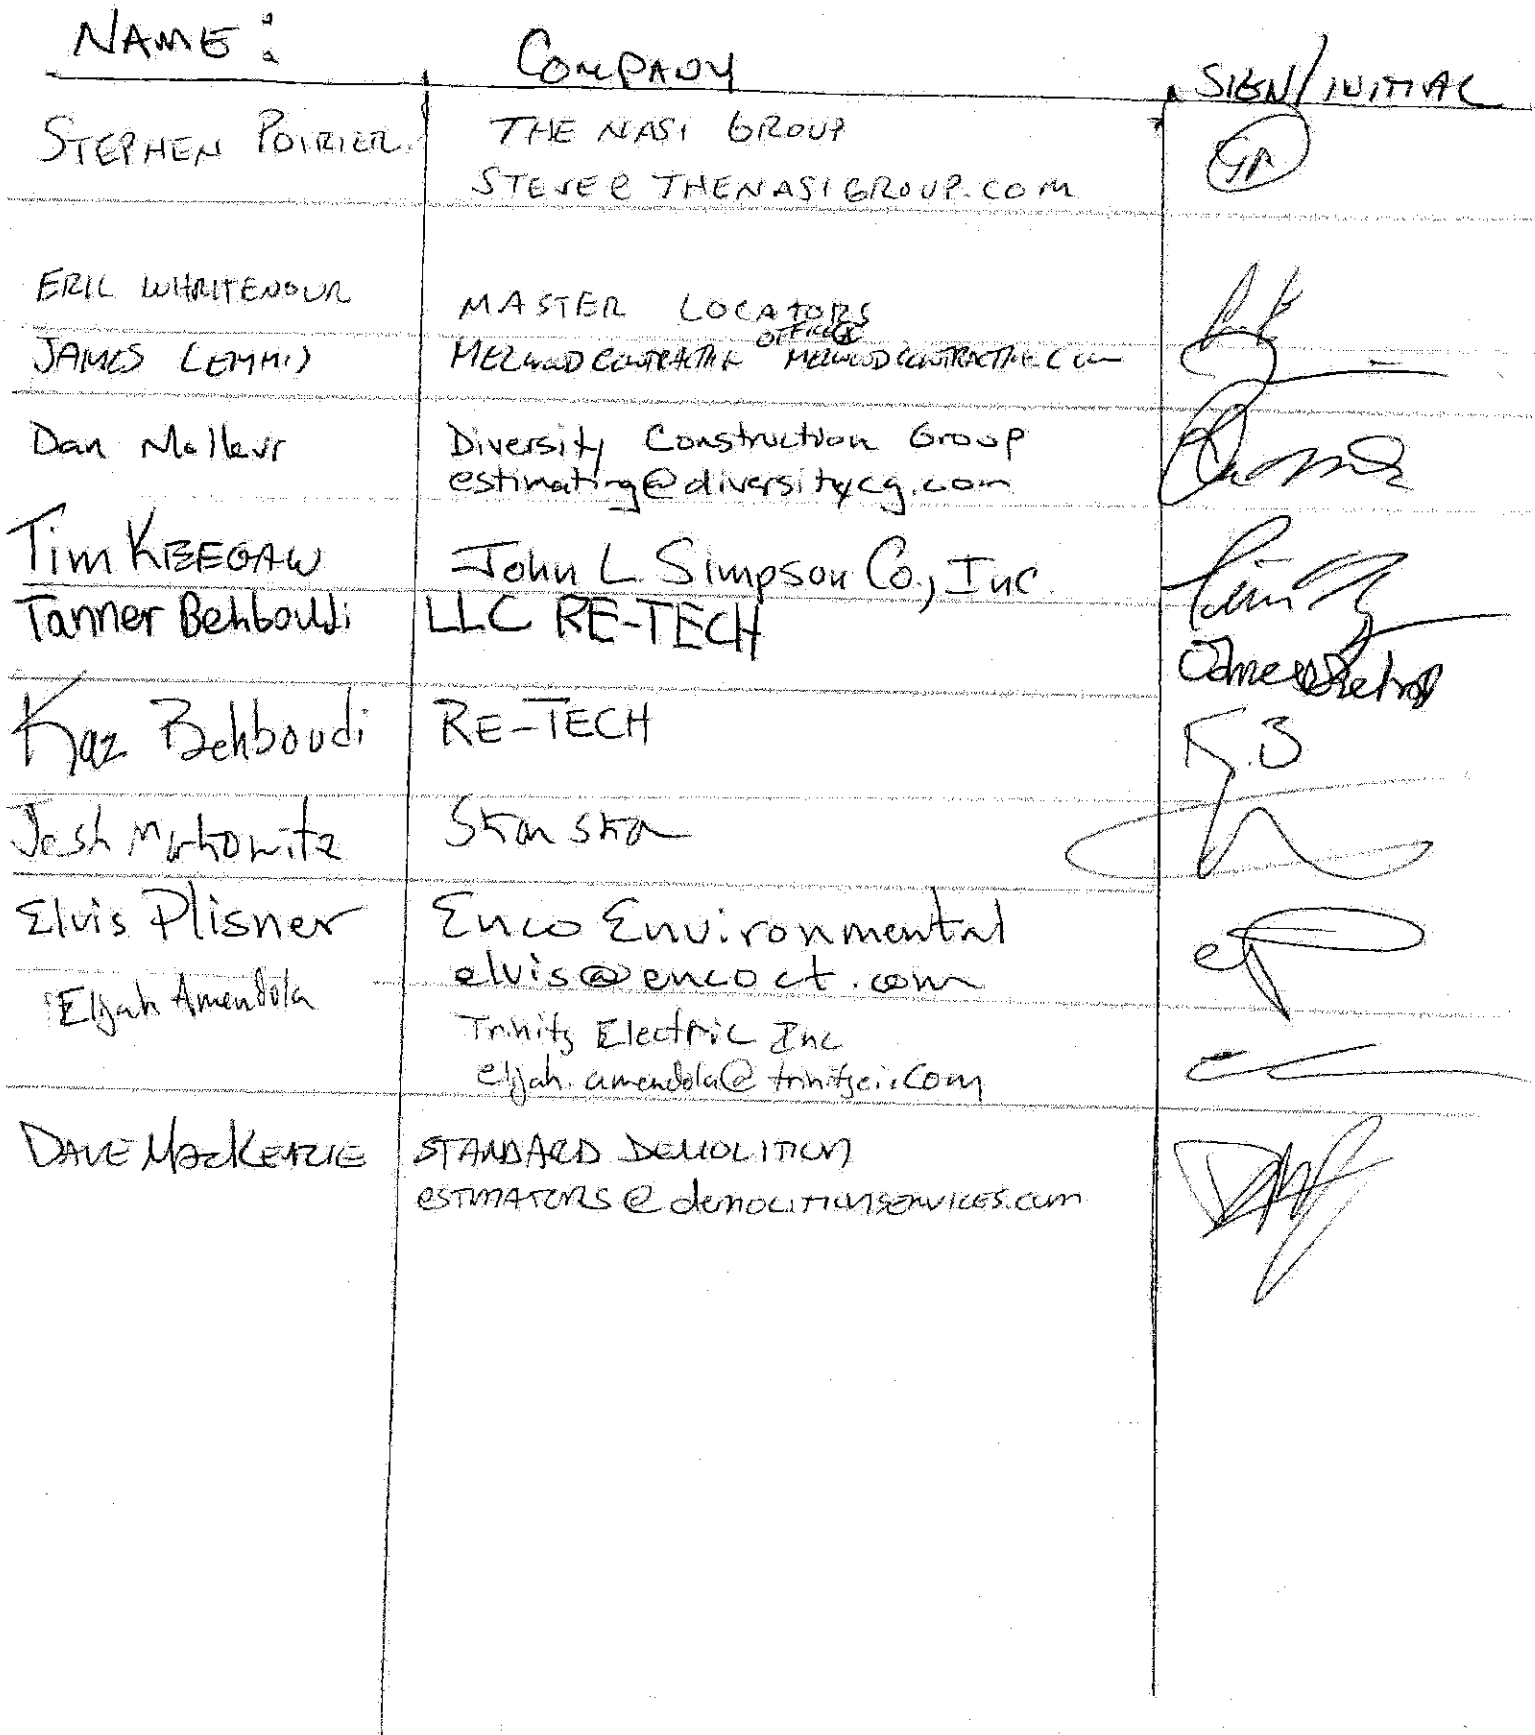 NAME: COMPANY SIGN/INITIAL
STEPHEN POIRIER THE NASI GROUP
STEVE@THENASIGROUP.COM
ERIC WHRITENOUR MASTER LOCATORS
OFFICE@
JAMES LEMMIS MELWOOD CONTRACTING MELWOODCONTRACTING.COM
Dan Diversity Construction Group
estimating@diversitycg.com
Tim KEEGAN John L. Simpson Co., Inc.
Tanner Behboudi LLC RE-TECH
Kaz Behboudi RE-TECH K.B
Josh Markowitz Skanska
Elvis Plisner Enco Environmental
elvis@encoct.com
Elijah Amendola
Trinity Electric Inc
elijah.amendola@trinityei.com
DAVE MacKENZIE STANDARD DEMOLITION
ESTIMATORS@demolitionservices.com